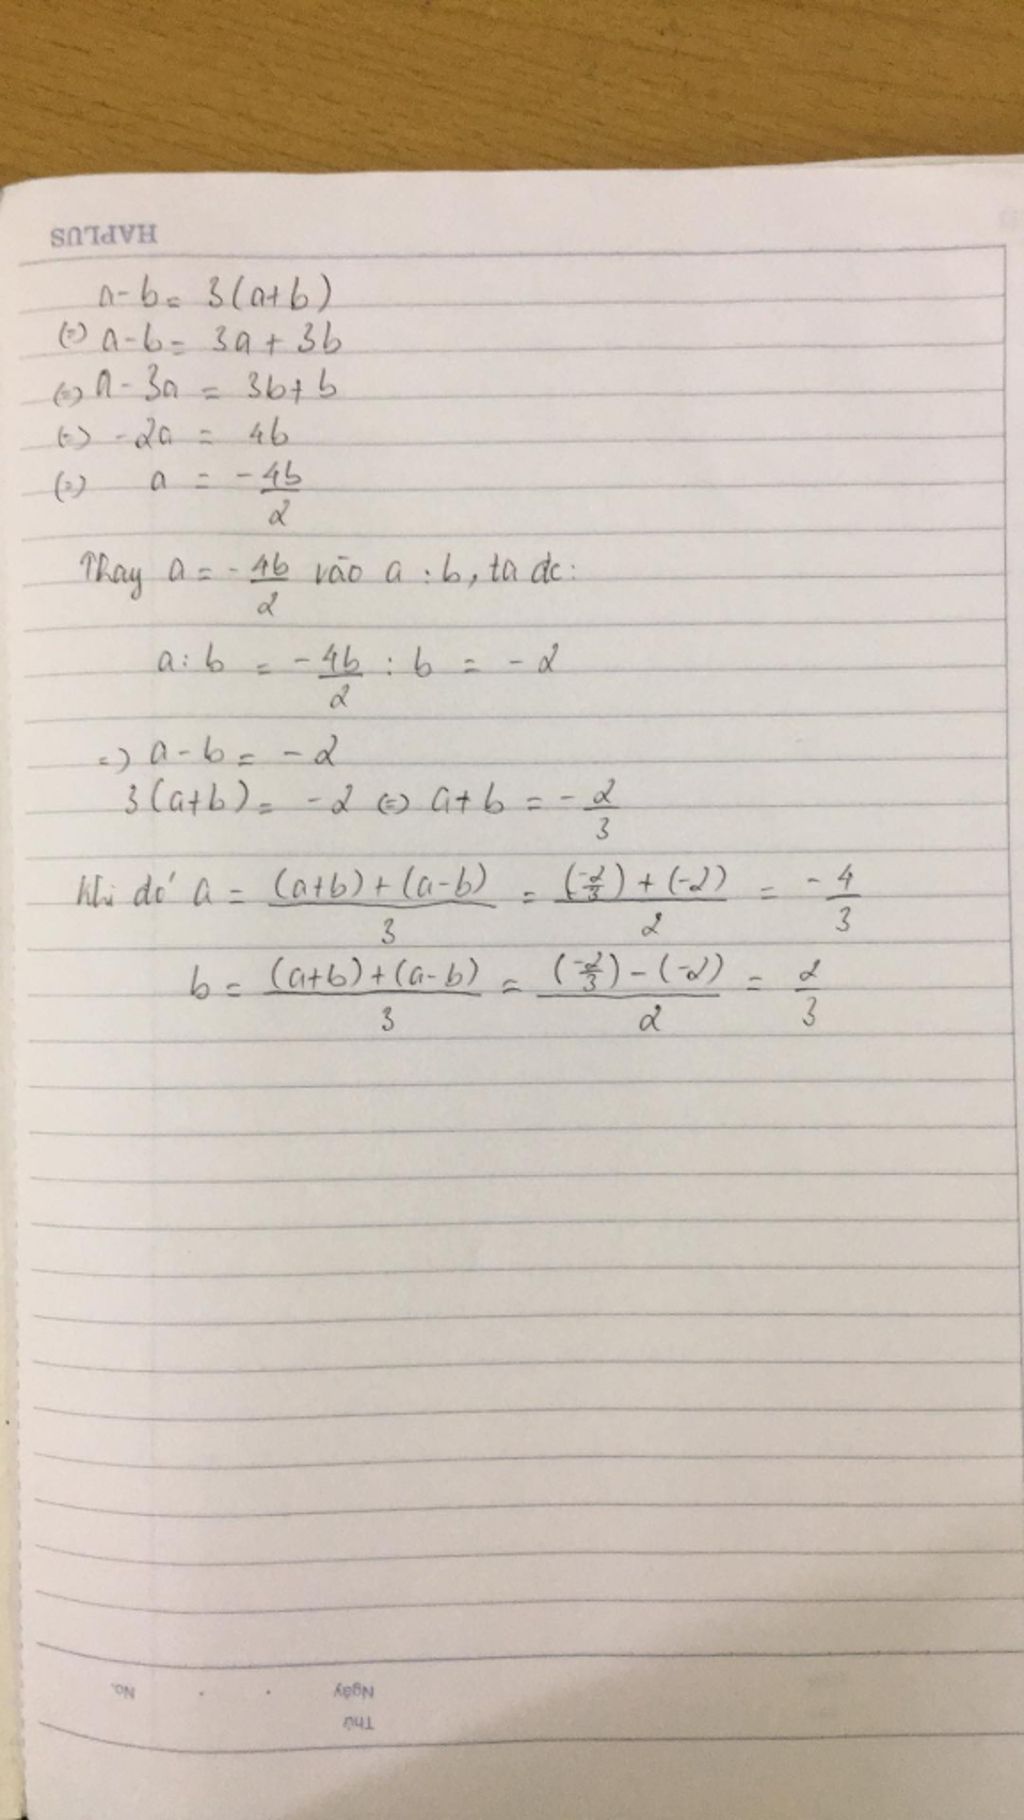 HAPLUS
a-b= 3(a+b)
(=) a-b= 3a+ 3b
(=) a - 3a = 3b+ b
(=) -2a = 4b
(=) a = -4b/2
Thay a = -4b/2 vào a : b, ta dc:
a: b = -4b/2 : b = -2
=) a-b= -2
3(a+b)= -2 (=) a+b = -2/3
Khi dó a = (a+b)+(a-b)/3 = (-2/3)+(-2)/2 = -4/3
b = (a+b)+(a-b)/3 = (-2/3)-(-2)/2 = 2/3
No. . . Ngày
Thứ